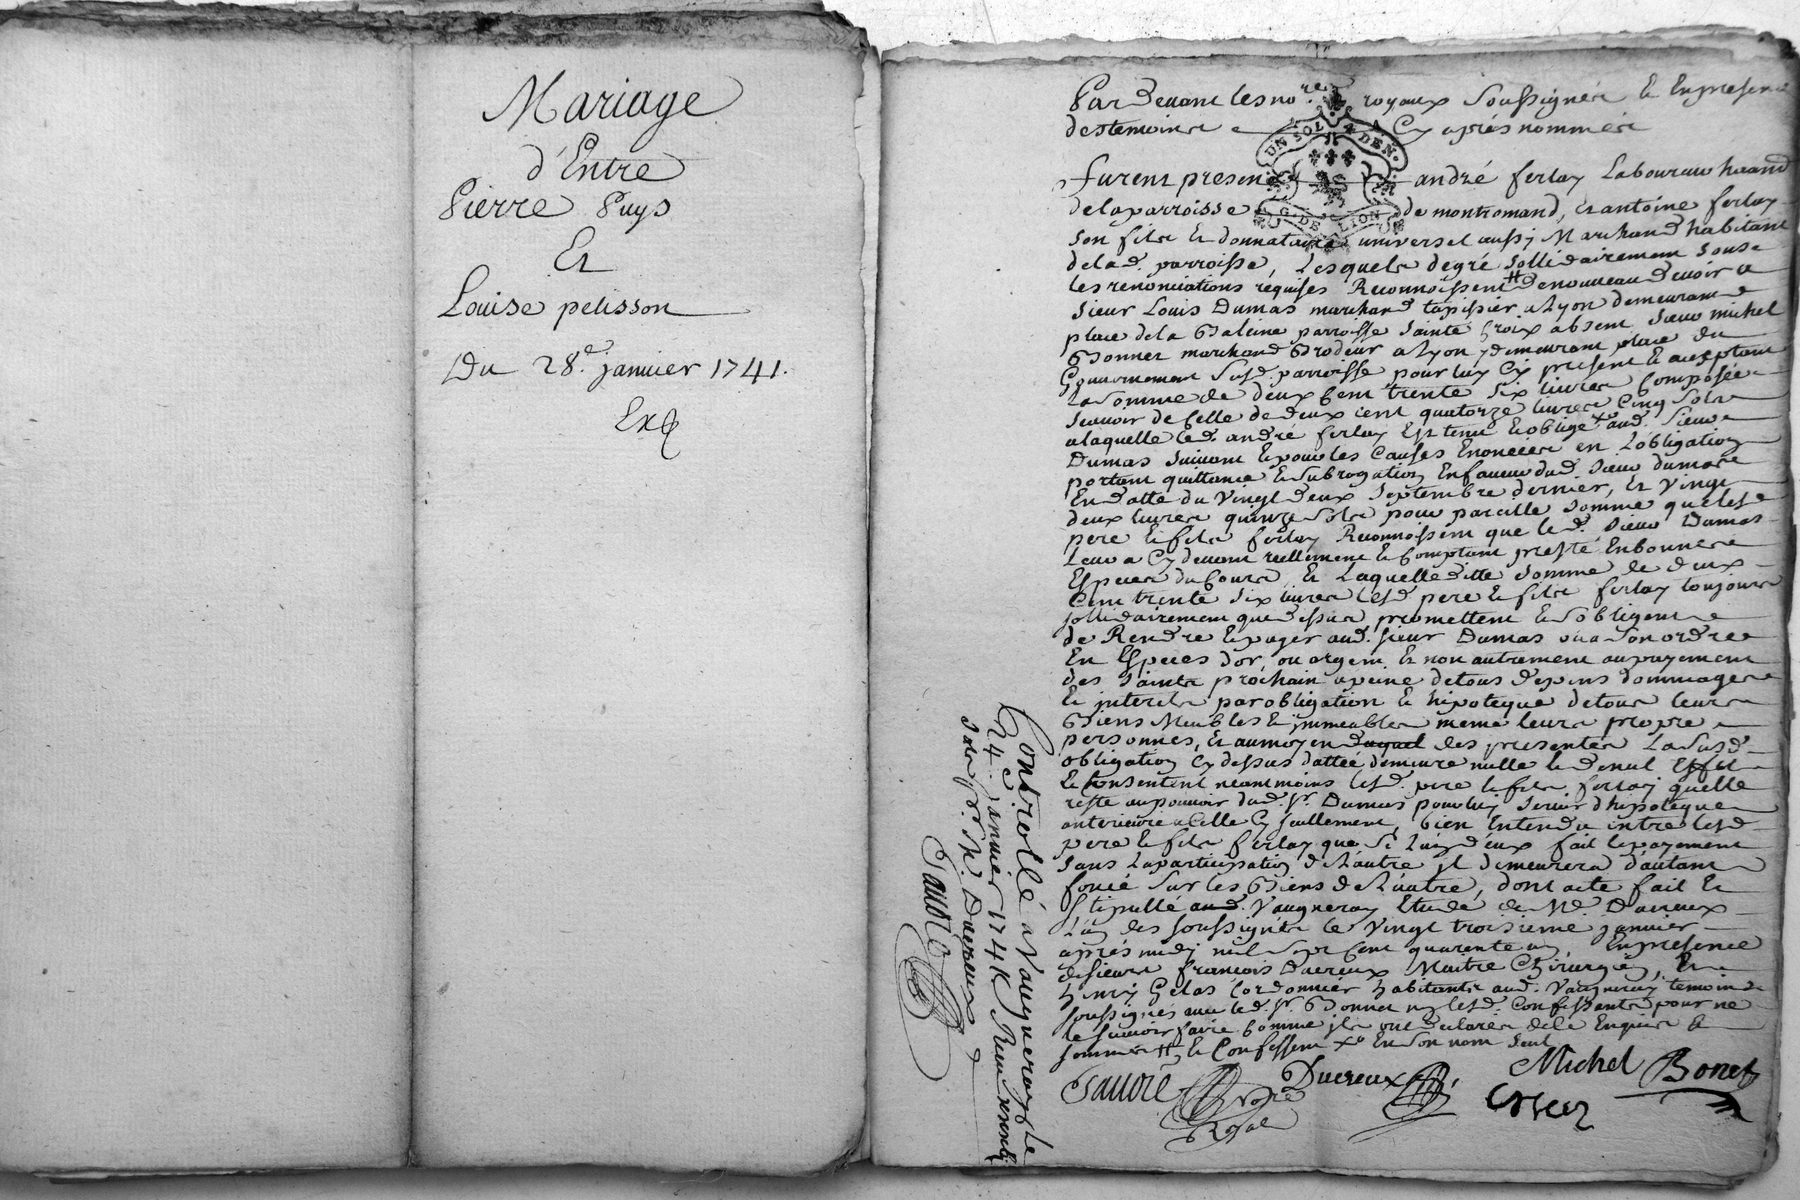 Mariage
d'Entre
Pierre Puys
Et
Louise pelisson
Du 28.e janvier 1741.
Exp
Pardevant les no.res royaux soussignés & En presence
des temoins Cy aprés nommés
UN SOL 4 DEN.
G. DE LION
furent presens andré ferlay Laboureur
de la parroisse de montromand, Et antoine ferlay
son fils & donnataire universel aussi Marchand habitant
de lad. parroisse, Lesquels de gré sollidairement sous
les renonciations requises Reconnoissent # de nouveau devoir a
sieur Louis Dumas marchand tapissier a Lyon demeurant
place de la Baleine parroisse sainte Croix absent sieur michel
Bonnet marchand Brodeur a Lyon y demeurant place du
Gouvernement susd. parroisse pour luy Cy present & acceptant
La somme de deux Cent trente six livres Composée
scavoir de Celle de deux cent quatorze livres Cinq sols
a laquelle led. andré ferlay Est tenu & obligé xo aud. sieur
Dumas suivant & pour les Causes Enoncées en L'obligation
portant quittance & subrogation En faveur dud. sieur dumas
En datte du vingt deux septembre dernier, Et vingt
deux livres quinze sols pour pareille somme que lesd.
pere & fils ferlay Reconnoissent que led. sieur Dumas
Leur a Cy devant reellement & Comptant presté En bonnes
Especes du Cours, Et Laquelle ditte somme de deux
Cent trente six livres lesd. pere & fils ferlay toujours
sollidairement que dessus promettent & s'obligent
de Rendre & payer aud. sieur Dumas ou a son ordre
En Especes d'or, ou argent Et non autrement au payement
des saints prochain a peine de tous depens dommages
& interets par obligation & hipoteque de tous leurs
Biens Meubles & immeubles meme leurs propre
personnes, Et au moyen duquel des presentes La susd.
obligation Cy dessus dattée demeure nulle & de nul Effet
& Consentent neantmoins lesd. pere & fils ferlay quelle
reste au pouvoir dud. sr. Dumas pour luy servir d'hipoteque
anterieure a Celle Cy seullement, bien Entendu entre lesd.
pere & fils ferlay que si L'un d'eux fait le payement
sans La participation de L'autre il demeurera d'autant
foncé sur les Biens de L'autre, dont acte fait Et
stipullé aud. Vaugneray Etude de Me. Ducreux
L'un des soussignés le vingt troisieme janvier
aprés midy mil sept Cent quarente un En presence
de sieurs françois Ducreux Maitre Chirurgien, Et
henry Gelas Cordonnier habitants aud. Vaugneray temoins
soussignés avec led. sr. Bonnet non lesd. Confessants pour ne
le scavoir faire Comme ils ont declarés de ce Enquis &
sommés # & Confessent xo En son nom seul
Michel Bonet
Favore Ducreux
no.re
Royal
Controllé a Vaugneray Le
24. janvier 1741 Reçu
sols pr. Mr. Ducreux
Favore